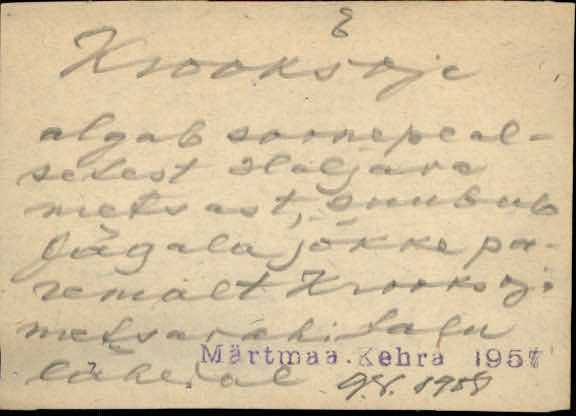 Krooksoje
algab soonepeal-
selest Haljava
metsast, suubub
Jägala jõkke pa-
remalt Krooksoj.
metsavahi talu
lähedal
Märtmaa.Kehra 1957